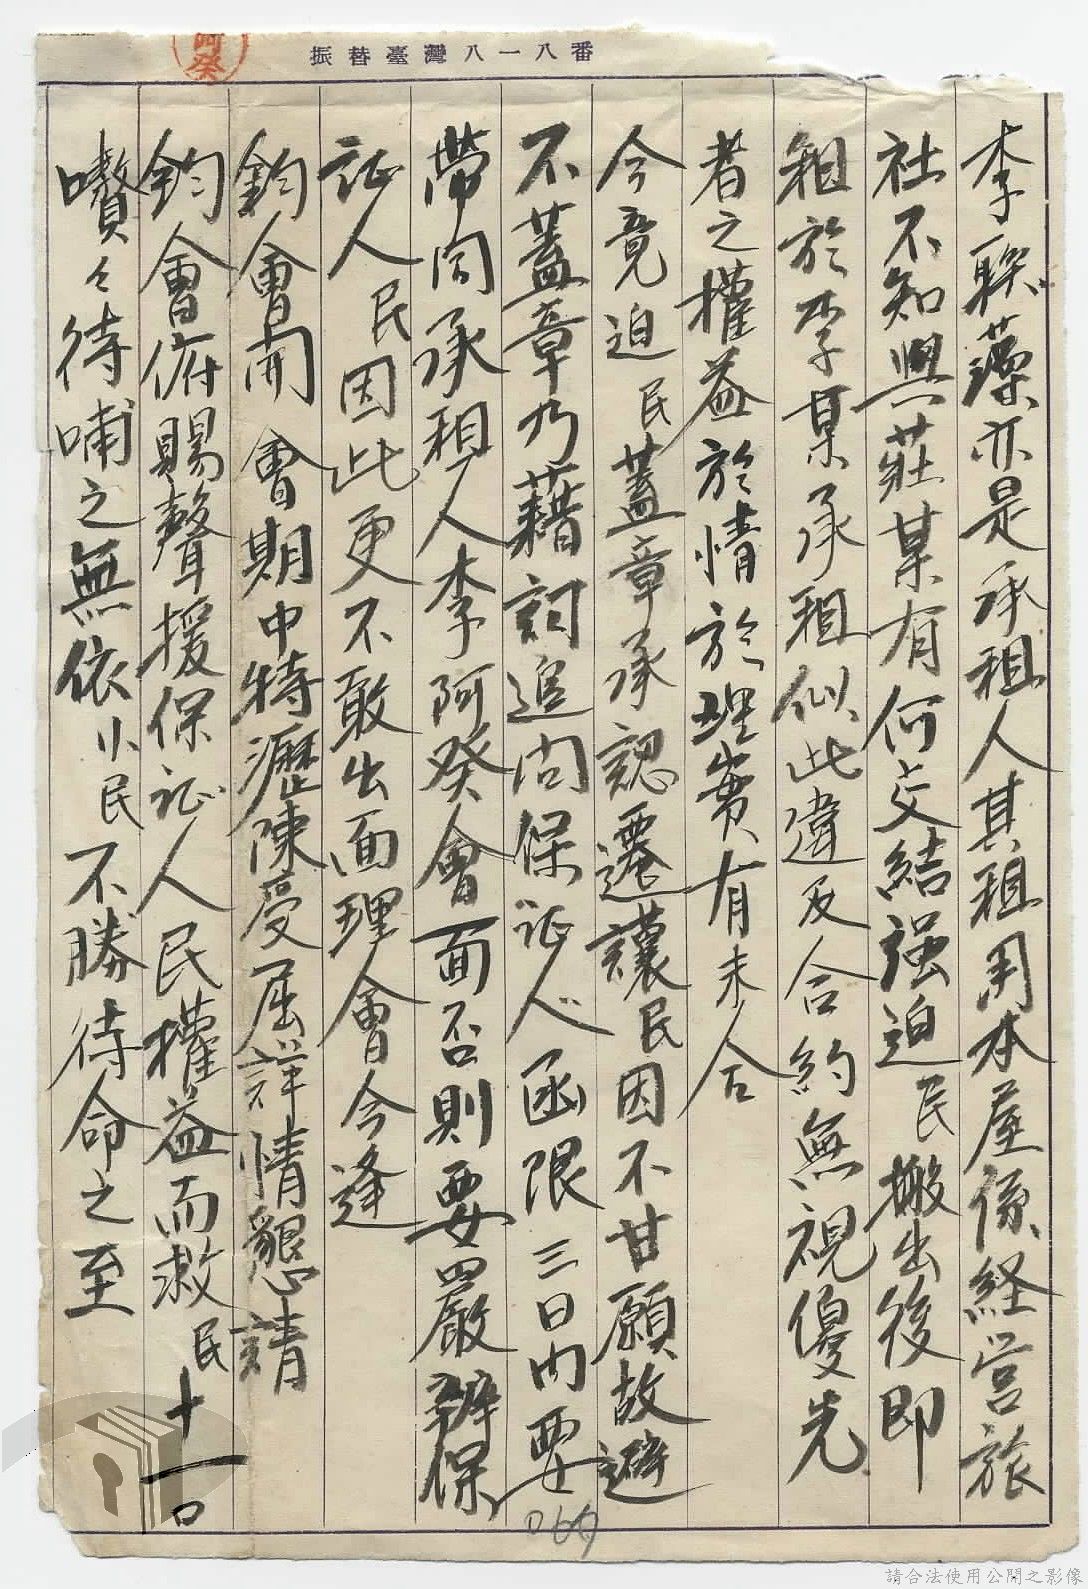 振替臺灣八一八番
阿癸
李聯藻亦是承租人其租用本屋係経営旅
社不知與莊某有何交結强迫民搬出後即
租於李某承租似此違反合約無視優先
者之權益於情於理實有未合
今竟迫民蓋章承認遷讓民因不甘願故避
不蓋章乃藉詞追問保证人函限三日内要
帶同承租人李阿癸會面否則要嚴辦保
证人民因此更不敢出面理會今逢
鈞會開會期中特瀝陳受屈詳情懇請
鈞會俯賜聲援保证人民權益而救民十一口
嗷々待哺之無依小民不勝待命之至
069
請合法使用公開之影像